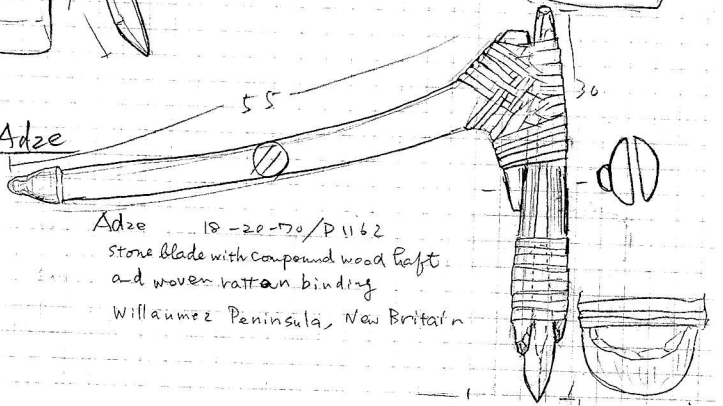 55
30
Adze
Adze 18-20-70/D1162
stone blade with compound wood haft
and woven rattan binding
Willaumez Peninsula, New Britain